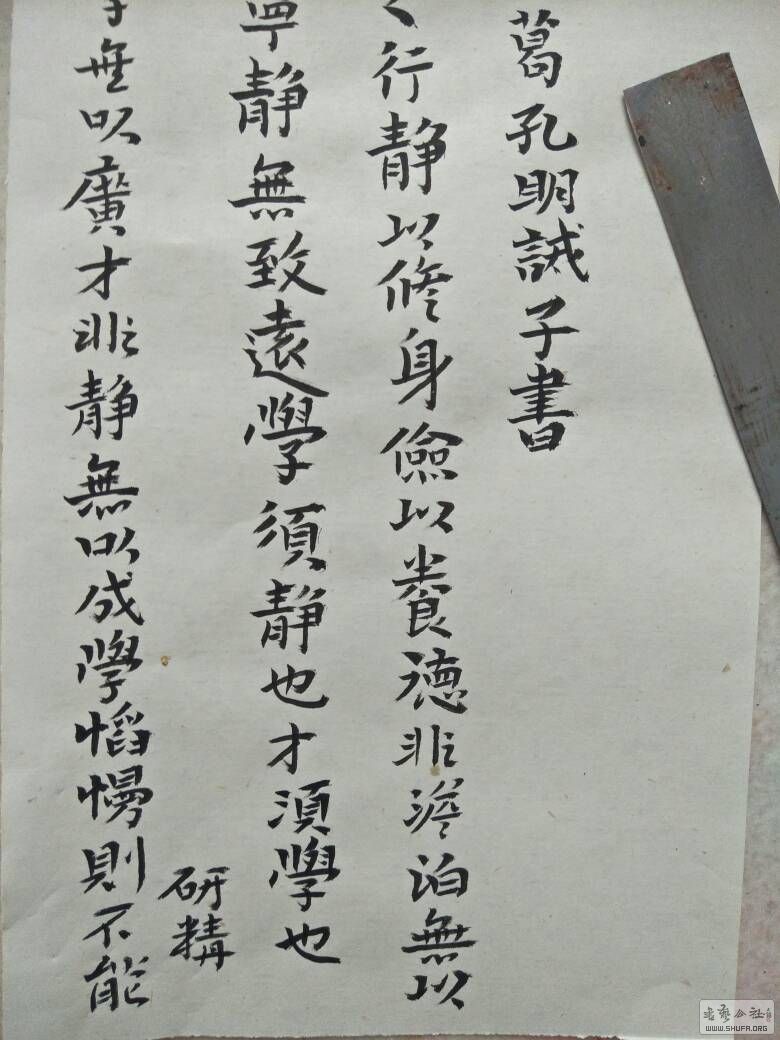 葛孔明誡子書
之行静以修身儉以養德非澹泊無以
寧静無致遠學須静也才須學也
研精
學無以廣才非静無以成學慆慢則不能
书艺公社
WWW.SHUFA.ORG